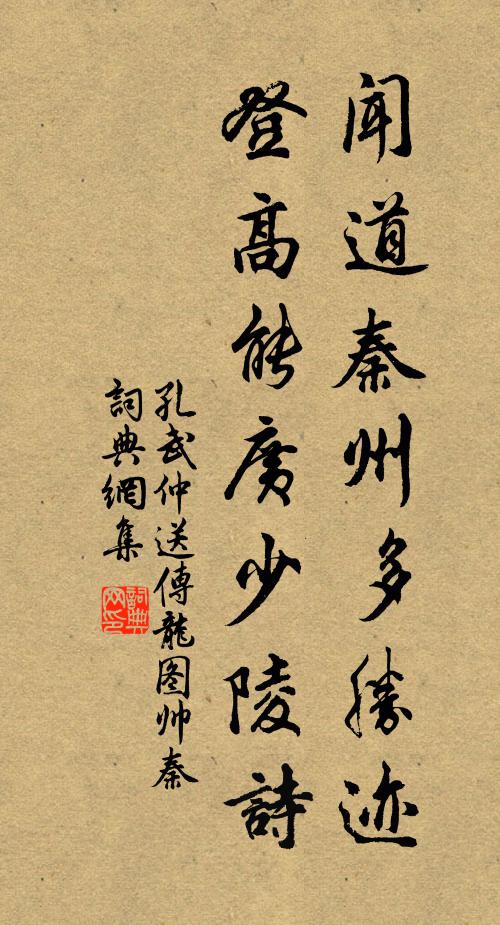 闻道秦州多勝迹
登高能廣少陵詩
孔武仲送傅龍图帅秦
詞典網集
詞典网印